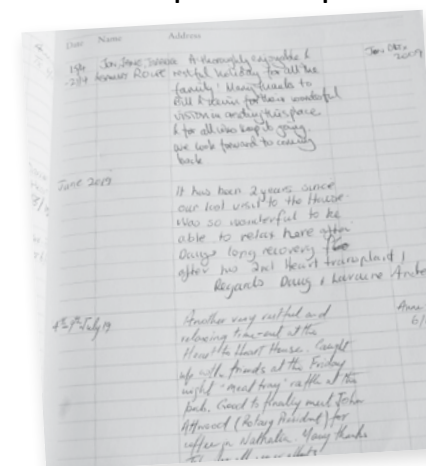 Date Name Address
Jon, Jane, A thoroughly enjoyable &
Rowe restful holiday for all the
family! Many thanks to
Bill & for their wonderful
vision in creating this space
& for all who keep it going.
We look forward to coming
back
June 2019
It has been 2 years since
our last visit to the House.
Was so wonderful to be
able to relax here after
Dougs long recovery
after his 2nd Heart transplant!
Regards Doug & Lorraine
July 19
Another very restful and
relaxing time-out at the
Heart to Heart House. Caught
up with friends at the Friday
night "meat tray" raffle at the
pub. Good to finally meet John
Attwood (Rotary President) for
coffee in Nathalia. Many thanks
for all your efforts